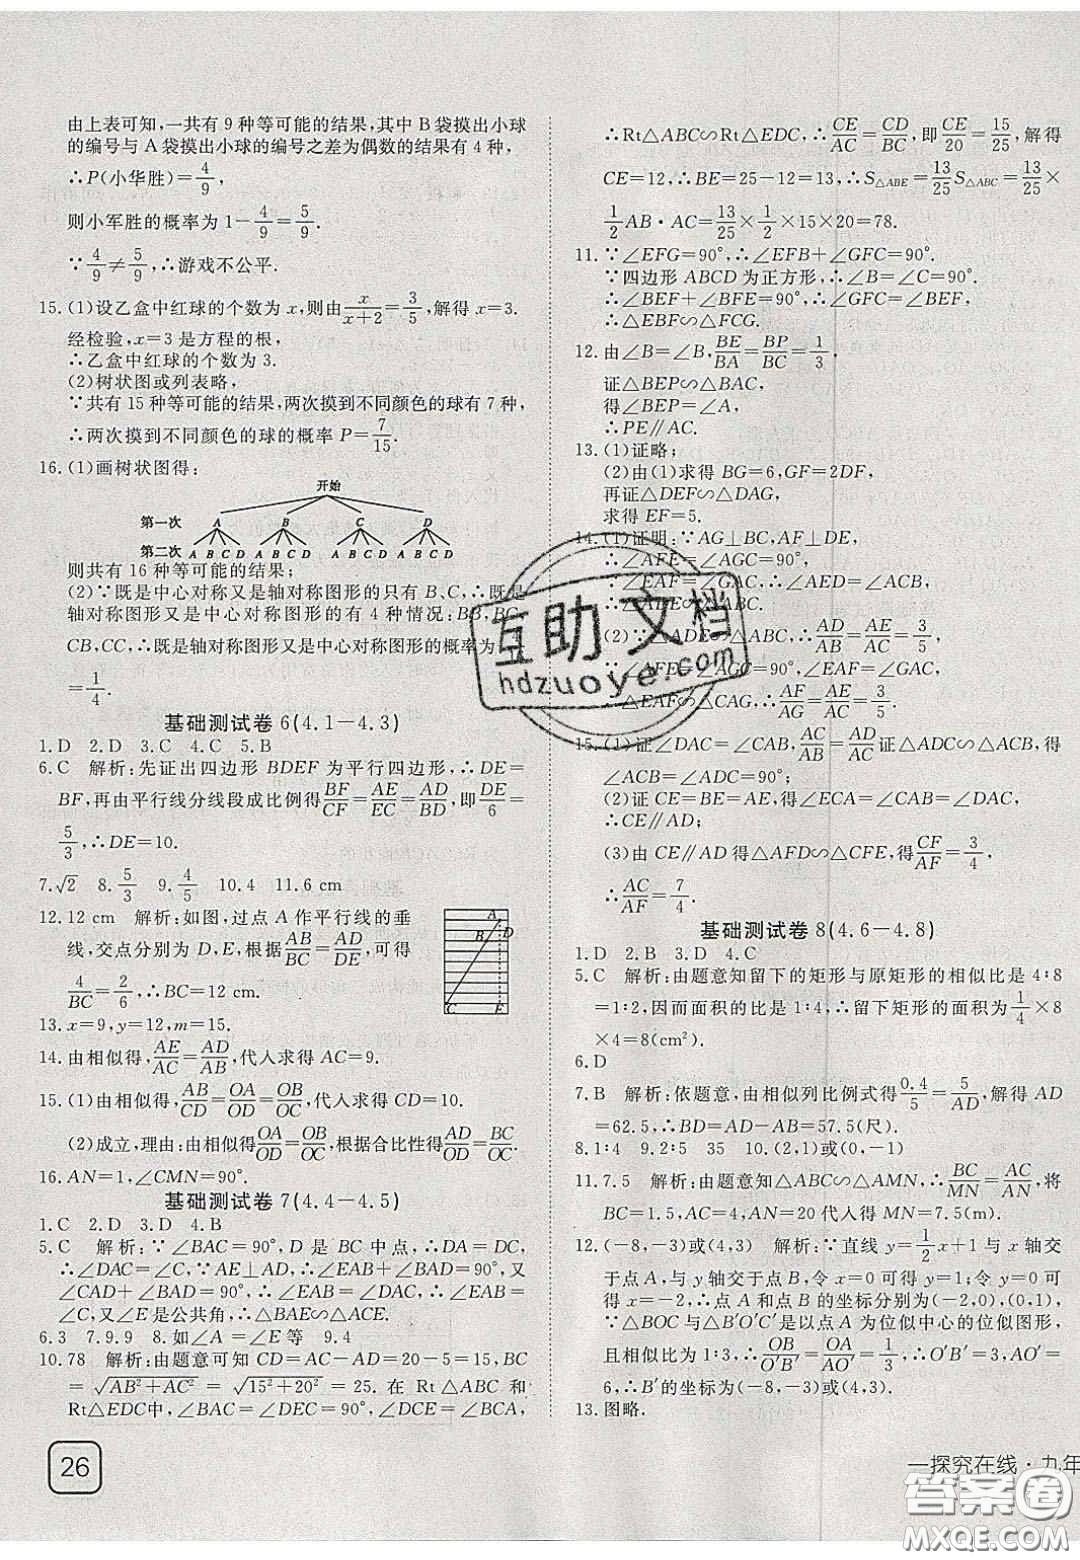 由上表可知,一共有9种等可能的结果,其中B袋摸出小球
的编号与A袋摸出小球的编号之差为偶数的结果有4种,
∴P(小华胜)=4/9,
则小军胜的概率为1-4/9=5/9.
∵4/9≠5/9,∴游戏不公平.
15.(1)设乙盒中红球的个数为x,则由x/(x+2)=3/5,解得x=3.
经检验,x=3是方程的根,
∴乙盒中红球的个数为3.
(2)树状图或列表略,
∵共有15种等可能的结果,两次摸到不同颜色的球有7种,
∴两次摸到不同颜色的球的概率P=7/15.
16.(1)画树状图得:
开始
第一次 A B C D
第二次 A B C D A B C D A B C D A B C D
则共有16种等可能的结果;
(2)∵既是中心对称又是轴对称图形的只有B、C,∴既是
轴对称图形又是中心对称图形的有4种情况:BB,BC,
CB,CC,∴既是轴对称图形又是中心对称图形的概率为
=1/4.
基础测试卷6(4.1-4.3)
1.D 2.D 3.C 4.C 5.B
6.C 解析:先证出四边形BDEF为平行四边形,∴DE=
BF,再由平行线分线段成比例得BF/CF=AE/EC=AD/BD,即DE/6=
5/3,∴DE=10.
7.√2 8.5/3 9.4/5 10.4 11.6 cm
12.12 cm 解析:如图,过点A作平行线的垂
线,交点分别为D,E,根据AB/BC=AD/DE,可得
4/BC=2/6,∴BC=12 cm.
A
B D
C E
13.x=9,y=12,m=15.
14.由相似得,AE/AC=AD/AB,代入求得AC=9.
15.(1)由相似得,AB/CD=OA/OD=OB/OC,代入求得CD=10.
(2)成立,理由:由相似得OA/OD=OB/OC,根据合比性得AD/OD=BC/OC.
16.AN=1,∠CMN=90°.
基础测试卷7(4.4-4.5)
1.C 2.D 3.D 4.B
5.C 解析:∵∠BAC=90°,D是BC中点,∴DA=DC,
∴∠DAC=∠C,∵AE⊥AD,∴∠EAD=90°,又
∠CAD+∠BAD=90°,∴∠EAB=∠DAC,∴∠EAB=
∠C,又∠E是公共角,∴△BAE∽△ACE.
6.3 7.9.9 8.如∠A=∠E等 9.4
10.78 解析:由题意可知CD=AC-AD=20-5=15,BC
=√(AB²+AC²)=√(15²+20²)=25.在Rt△ABC和
Rt△EDC中,∠BAC=∠DEC=90°,∠DCE=∠BCA,
26
∴Rt△ABC∽Rt△EDC,∴CE/AC=CD/BC,即CE/20=15/25,解得
CE=12,∴BE=25-12=13,∴S△ABE=13/25 S△ABC=13/25×
1/2 AB·AC=13/25×1/2×15×20=78.
11.∵∠EFG=90°,∴∠EFB+∠GFC=90°.
∵四边形ABCD为正方形,∴∠B=∠C=90°.
∴∠BEF+∠BFE=90°,∴∠GFC=∠BEF,
∴△EBF∽△FCG.
12.由∠B=∠B,BE/BA=BP/BC=1/3,
证△BEP∽△BAC,
得∠BEP=∠A.
∴PE∥AC.
13.(1)证略;
(2)由(1)求得BG=6,GF=2DF,
再证△DEF∽△DAG,
求得EF=5.
14.(1)证明:∵AG⊥BC,AF⊥DE,
∴∠AFE=∠AGC=90°,
∴∠EAF=∠GAC,∴∠AED=∠ACB,
(2)∵△ADE∽△ABC,∴AD/AB=AE/AC=3/5
∵∠AFE=∠AGC=90°,∠EAF=∠GAC,
∴△EAF∽△CAG,∴AF/AG=AE/AC=3/5.
15.(1)证∠DAC=∠CAB,AC/AB=AD/AC,证△ADC∽△ACB,得
∠ADC=∠ACB=90°;
(2)证CE=BE=AE,得∠ECA=∠CAB=∠DAC,
∴CE∥AD;
(3)由CE∥AD得△AFD∽△CFE,得CF/AF=3/4,
∴AC/AF=7/4.
基础测试卷8(4.6-4.8)
1.D 2.B 3.D 4.C
5.C 解析:由题意知留下的矩形与原矩形的相似比是4:8
=1:2,因而面积的比是1:4,∴留下矩形的面积为1/4×8
×4=8(cm²).
6.D
7.B 解析:依题意,由相似列比例式得0.4/5=5/AD,解得AD
=62.5,∴BD=AD-AB=57.5(尺).
8.1:4 9.2:5 35 10.(2,0)或(0,-1)
11.7.5 解析:由题意知△ABC∽△AMN,∴BC/MN=AC/AN,将
BC=1.5,AC=4,AN=20代入得MN=7.5(m).
12.(-8,-3)或(4,3) 解析:∵直线y=1/2x+1与x轴交
于点A,与y轴交于点B,令x=0可得y=1;令y=0可
得x=-2,∴点A和点B的坐标分别为(-2,0),(0,1),
∵△BOC与△B'O'C'是以点A为位似中心的位似图形,
且相似比为1:3,∴OB/O'B'=OA/AO'=1/3,∴O'B'=3,AO'=
6,∴B'的坐标为(-8,-3)或(4,3).
13.图略.
一探究在线·九年
互助文档
hdzuoye.com
答案圈
MXQE.COM